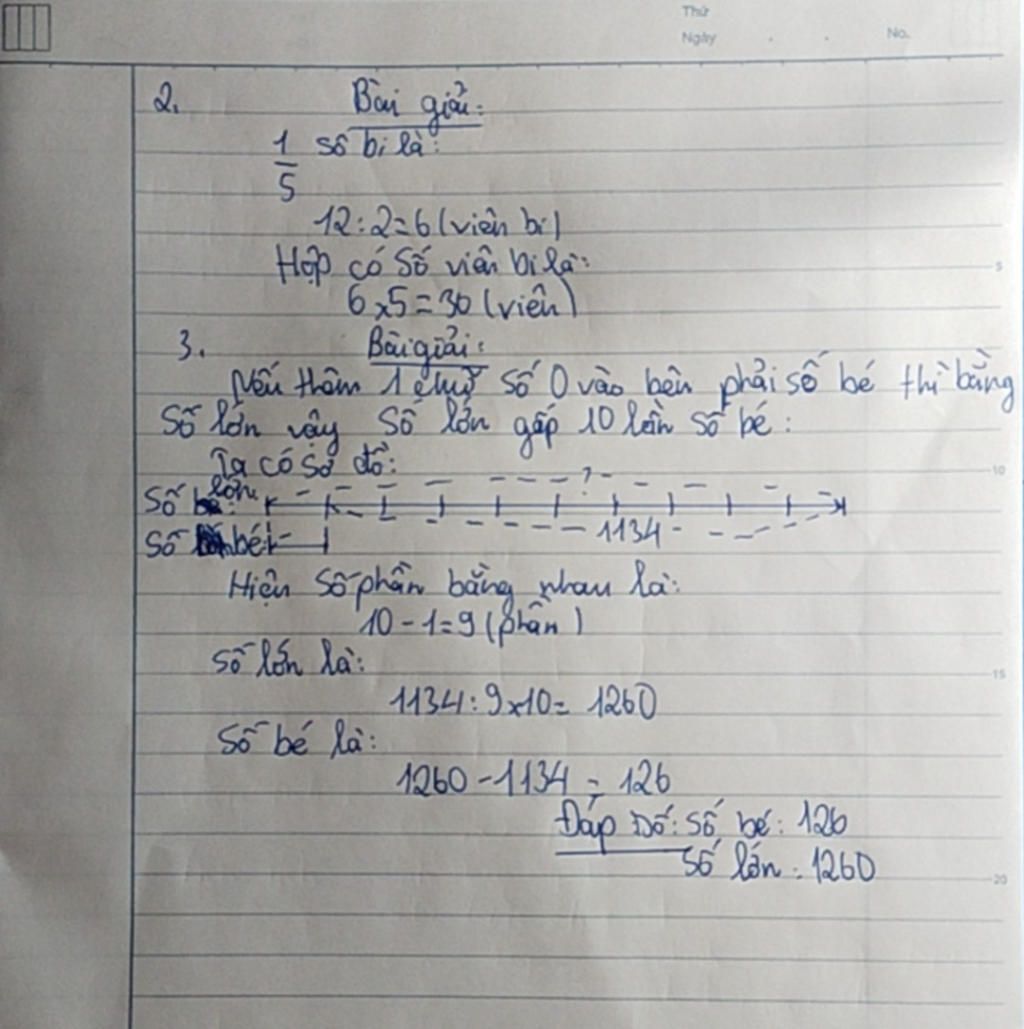 Thứ
Ngày . . No.
2. Bài giải:
1/5 số bi là:
12:2=6 (viên bi)
Hộp có số viên bi là:
6x5=30 (viên)
5
3. Bài giải:
Nếu thêm 1 chữ số 0 vào bên phải số bé thì bằng
Số lớn vậy số lớn gấp 10 lần số bé:
Ta có sơ đồ:
10
?
Số lớn:
1134
Số bé:
Hiện số phần bằng nhau là:
10-1=9 (phần)
Số lớn là:
15
1134:9x10= 1260
Số bé là:
1260-1134 = 126
Đáp Số: Số bé: 126
Số lớn: 1260
20